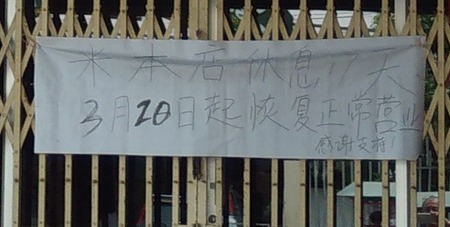 米本店休息17天
3月20日起恢复正常营业
感谢支持!